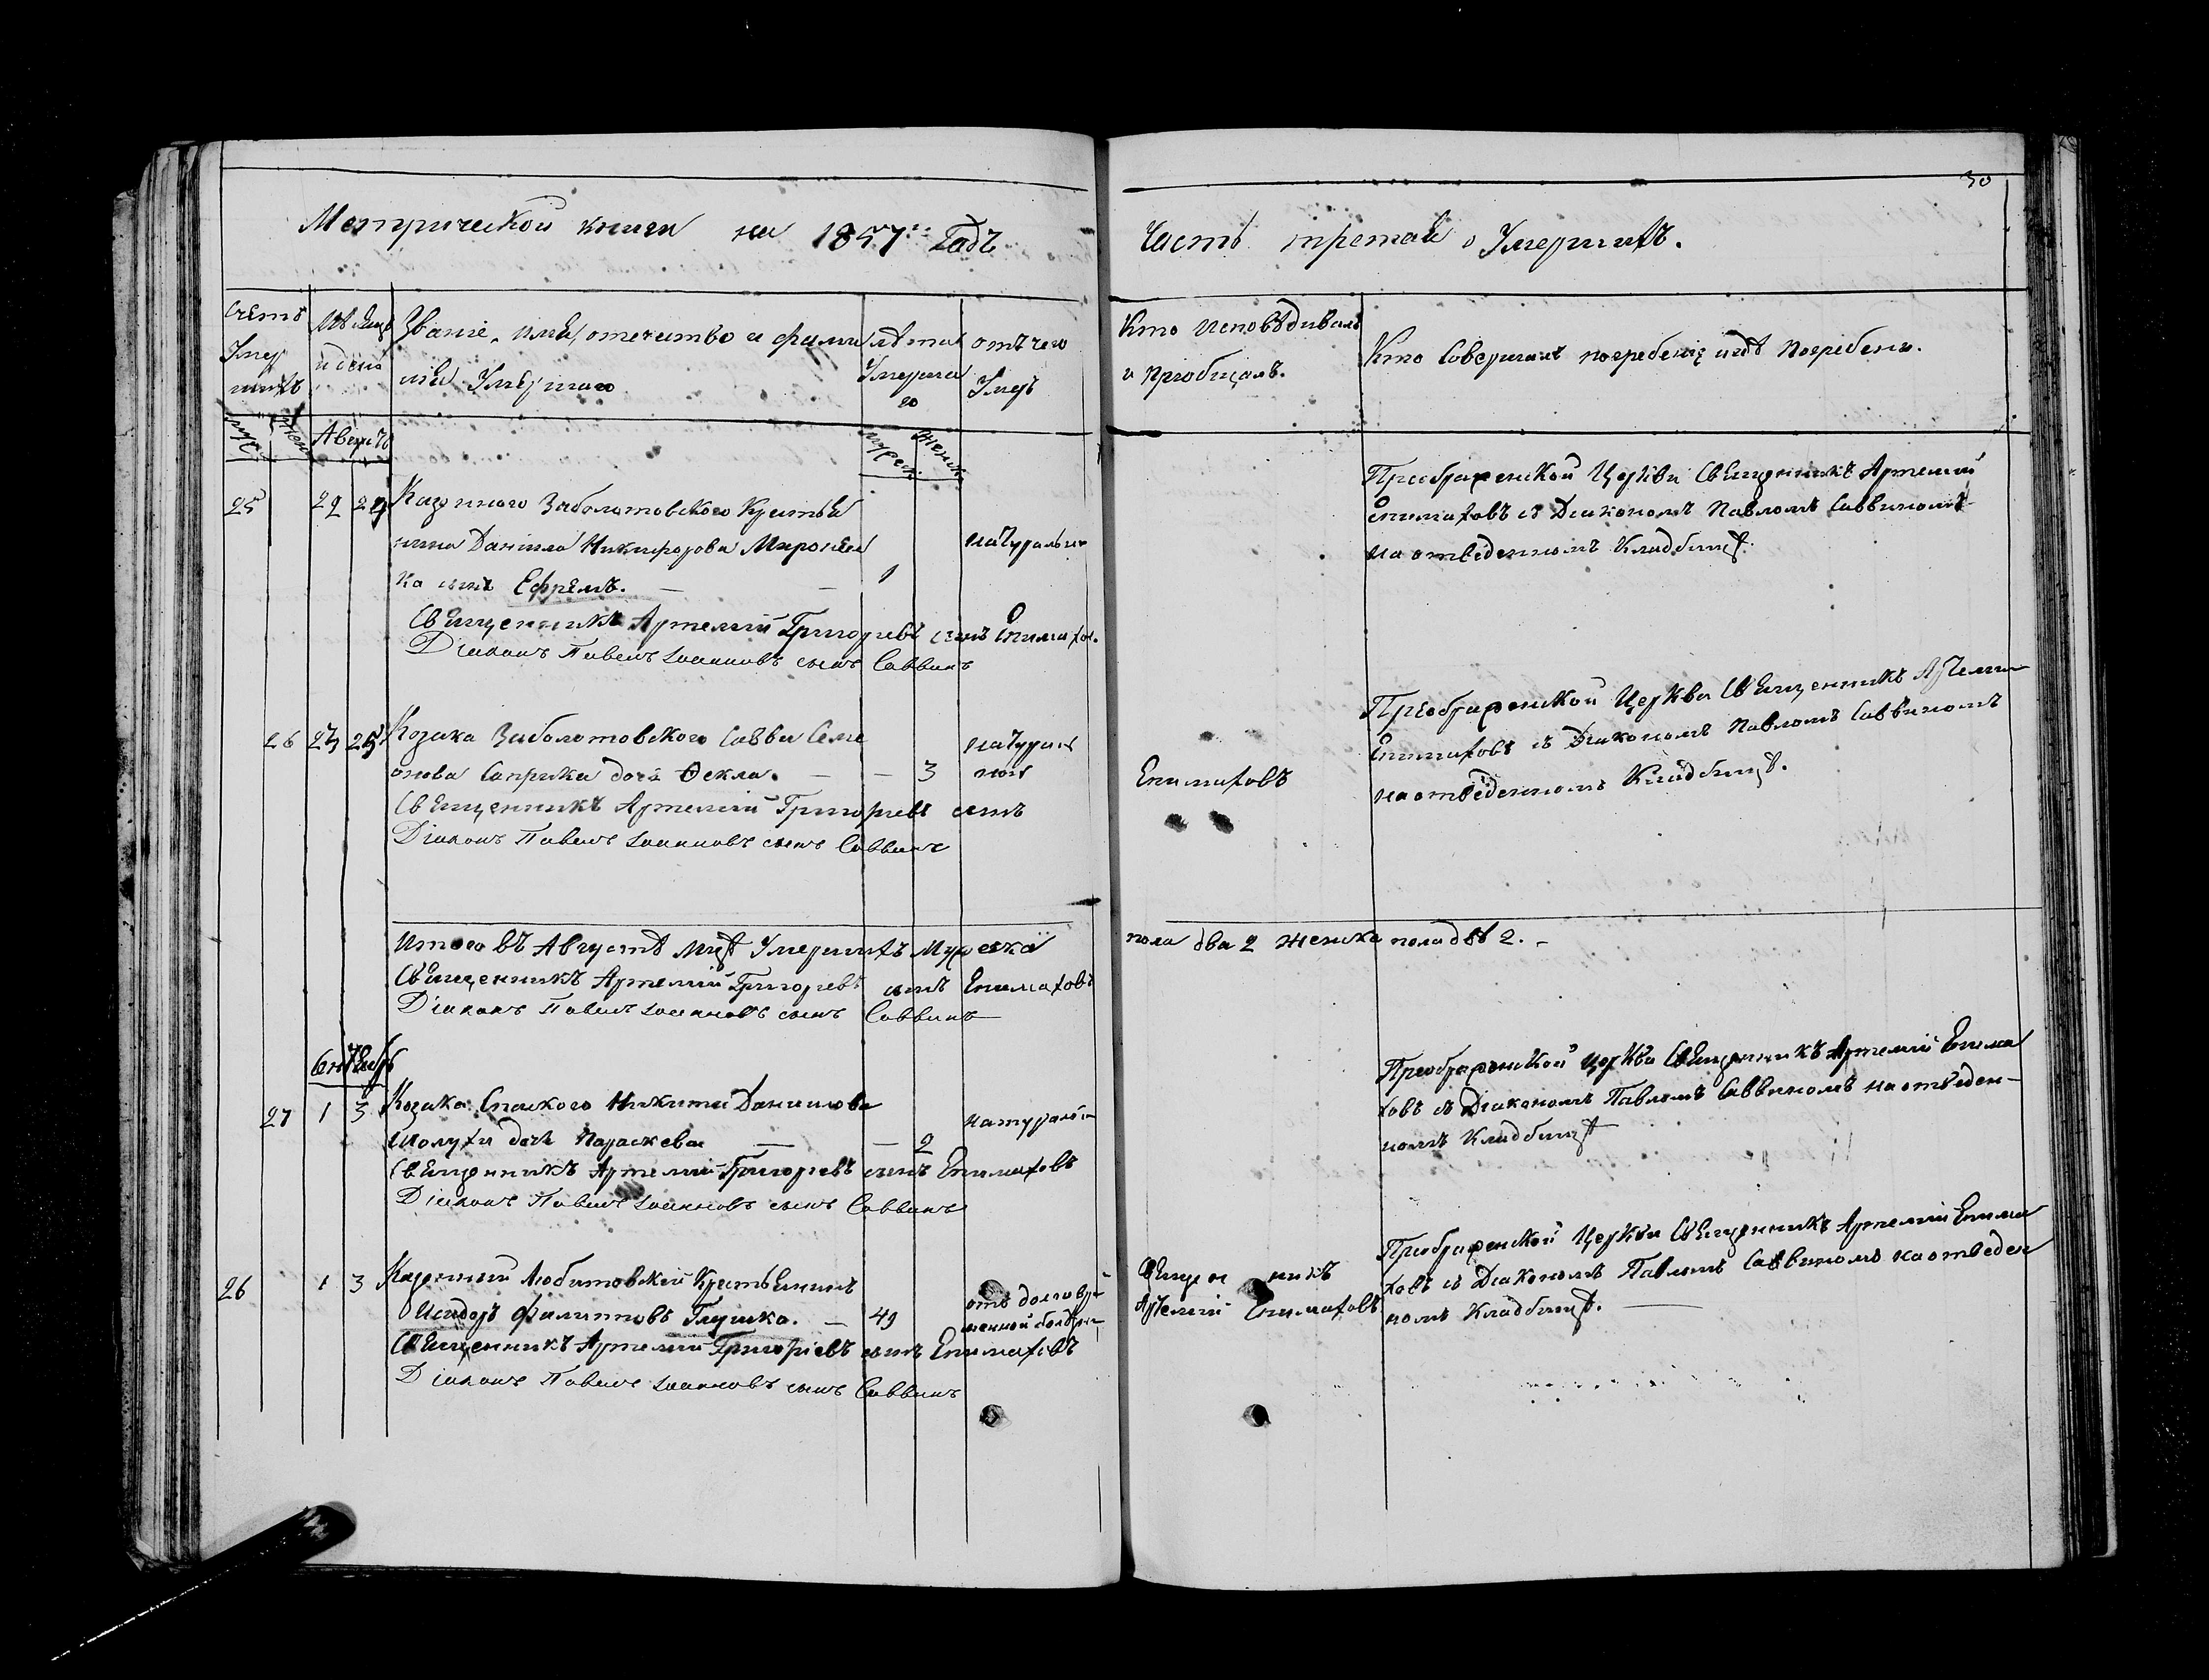 30
Метрической книги на 1857й Годъ
Часть третая о Умершихъ.
Счетъ Умер шихъ
муж. Жен
Мѣсяцъ и день
Званіе, имя, отечество и фами лія Умершаго
лѣта Умерша го
мужеск. Женск.
отъ чего Умеръ
Кто Исповѣдивалъ и пріобщалъ.
Кто Совершалъ погребеніе и гдѣ Погребены.
Августъ
25 22 24 Казеннаго Заболотовского Крестья
нина Даніила Никифорова Миронен
ка сынъ Ефремъ. — — 1
натуральн
Священникъ Артемій Григорьевъ сынъ Епимахов.
Діаконъ Павелъ Іоанновъ сынъ Саввинъ
Преображенской Церкви Священникъ Артемій
Епимаховъ съ Діакономъ Павломъ Саввиномъ
на отведенномъ Кладбищѣ.
26 23 25 Козака Заболотовского Саввы Семе
онова Саприка дочь Ѳекла. — — 3
натураль
ной
Священникъ Артемій Григорьевъ сынъ
Діаконъ Павелъ Іоанновъ сынъ Саввинъ
Епимаховъ
Преображенской Церкви Священникъ Артемій
Епимаховъ съ Діакономъ Павломъ Саввиномъ
на отведенномъ Кладбищѣ.
Итого въ Августѣ мцѣ Умершихъ Мужеска
пола два 2 Женска пола двѣ 2. —
Священникъ Артемій Григорьевъ сынъ Епимаховъ
Діаконъ Павелъ Іоанновъ сынъ Саввинъ
Сентябрь
27 1 3 Козака Спаского Никиты Данилова
Шолухи дочь Параскева — — 2
натуральн
Священникъ Артемій Григорьевъ сынъ Епимаховъ
Діаконъ Павелъ Іоанновъ сынъ Саввинъ
Преображенской Церкви Священникъ Артемій Епима
ховъ съ Діакономъ Павломъ Саввиномъ на отведен-
номъ Кладбищѣ
26 1 3 Казенный Любитовской Крестьянинъ
Исидоръ Филиповъ Глушко. — 49
отъ долговре
менной болѣзни
Священникъ Артемій Григорьевъ сынъ Епимаховъ
Діаконъ Павелъ Іоанновъ сынъ Саввинъ
Священ никъ
Артемій Епимаховъ
Преображенской Церкви Священникъ Артемій Епима
ховъ съ Діакономъ Павломъ Саввиномъ на отведен
номъ Кладбищѣ. —